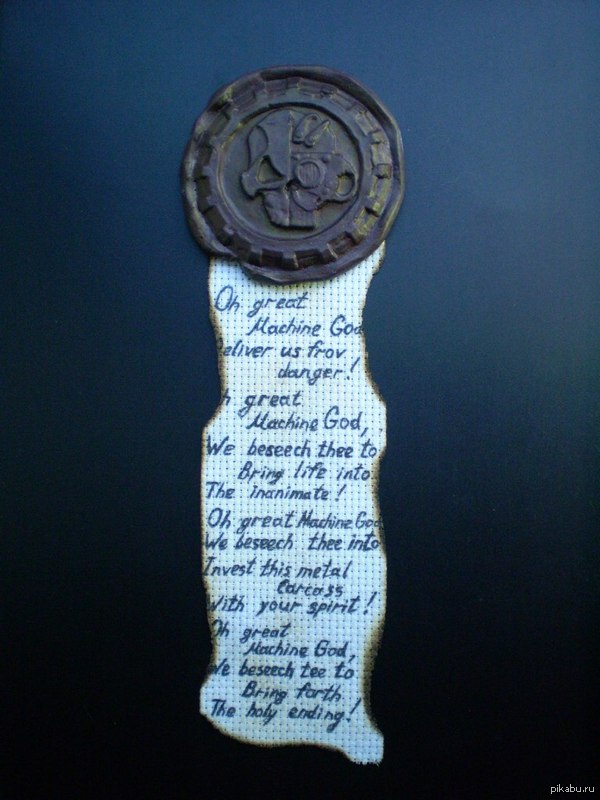 Oh great
Machine God
eliver us frov
danger!
h great
Machine God,
We beseech thee to
Bring life into
The inanimate!
Oh great Machine God
We beseech thee into
Invest this metal
Carcass
With your spirit!
Oh great
Machine God,
We beseech tee to
Bring forth
The holy ending!
pikabu.ru